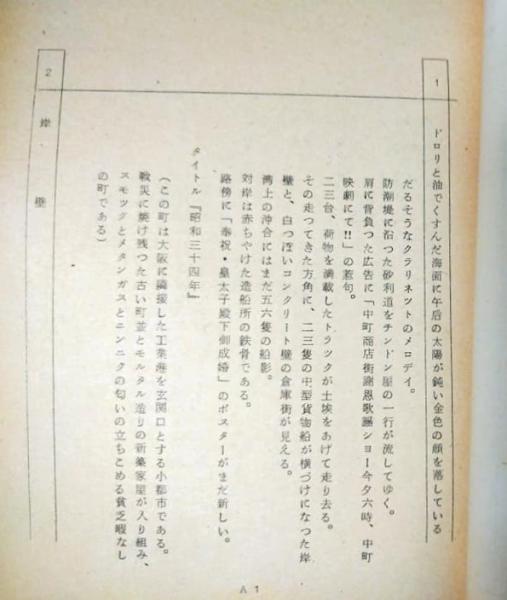 1
ドロリと油でくすんだ海面に午後の太陽が鈍い金色の顔を落している
だるそうなクラリネットのメロデイ。
防潮堤に沿つた砂利道をチンドン屋の一行が流してゆく。
肩に背負つた広告に「中町商店街謝恩歌謡シヨー今夕六時、中町
映劇にて!!」の惹句。
二三台、荷物を満載したトラツクが土埃をあげて走り去る。
その走つてきた方角に、二三隻の中型貨物船が横づけになつた岸
壁と、白つぽいコンクリート壁の倉庫街が見える。
湾上の沖合にはまだ五六隻の船影。
対岸は赤ちやけた造船所の鉄骨である。
路傍に「奉祝・皇太子殿下御成婚」のポスターがまだ新しい。
タイトル『昭和三十四年』
(この町は大阪に隣接した工業港を玄関口とする小都市である。
戦災に焼け残つた古い町並とモルタル造りの新築家屋が入り組み、
スモツグとメタンガスとニンニクの匂いの立ちこめる貧乏暇なし
の町である)
2 岸 壁
A 1